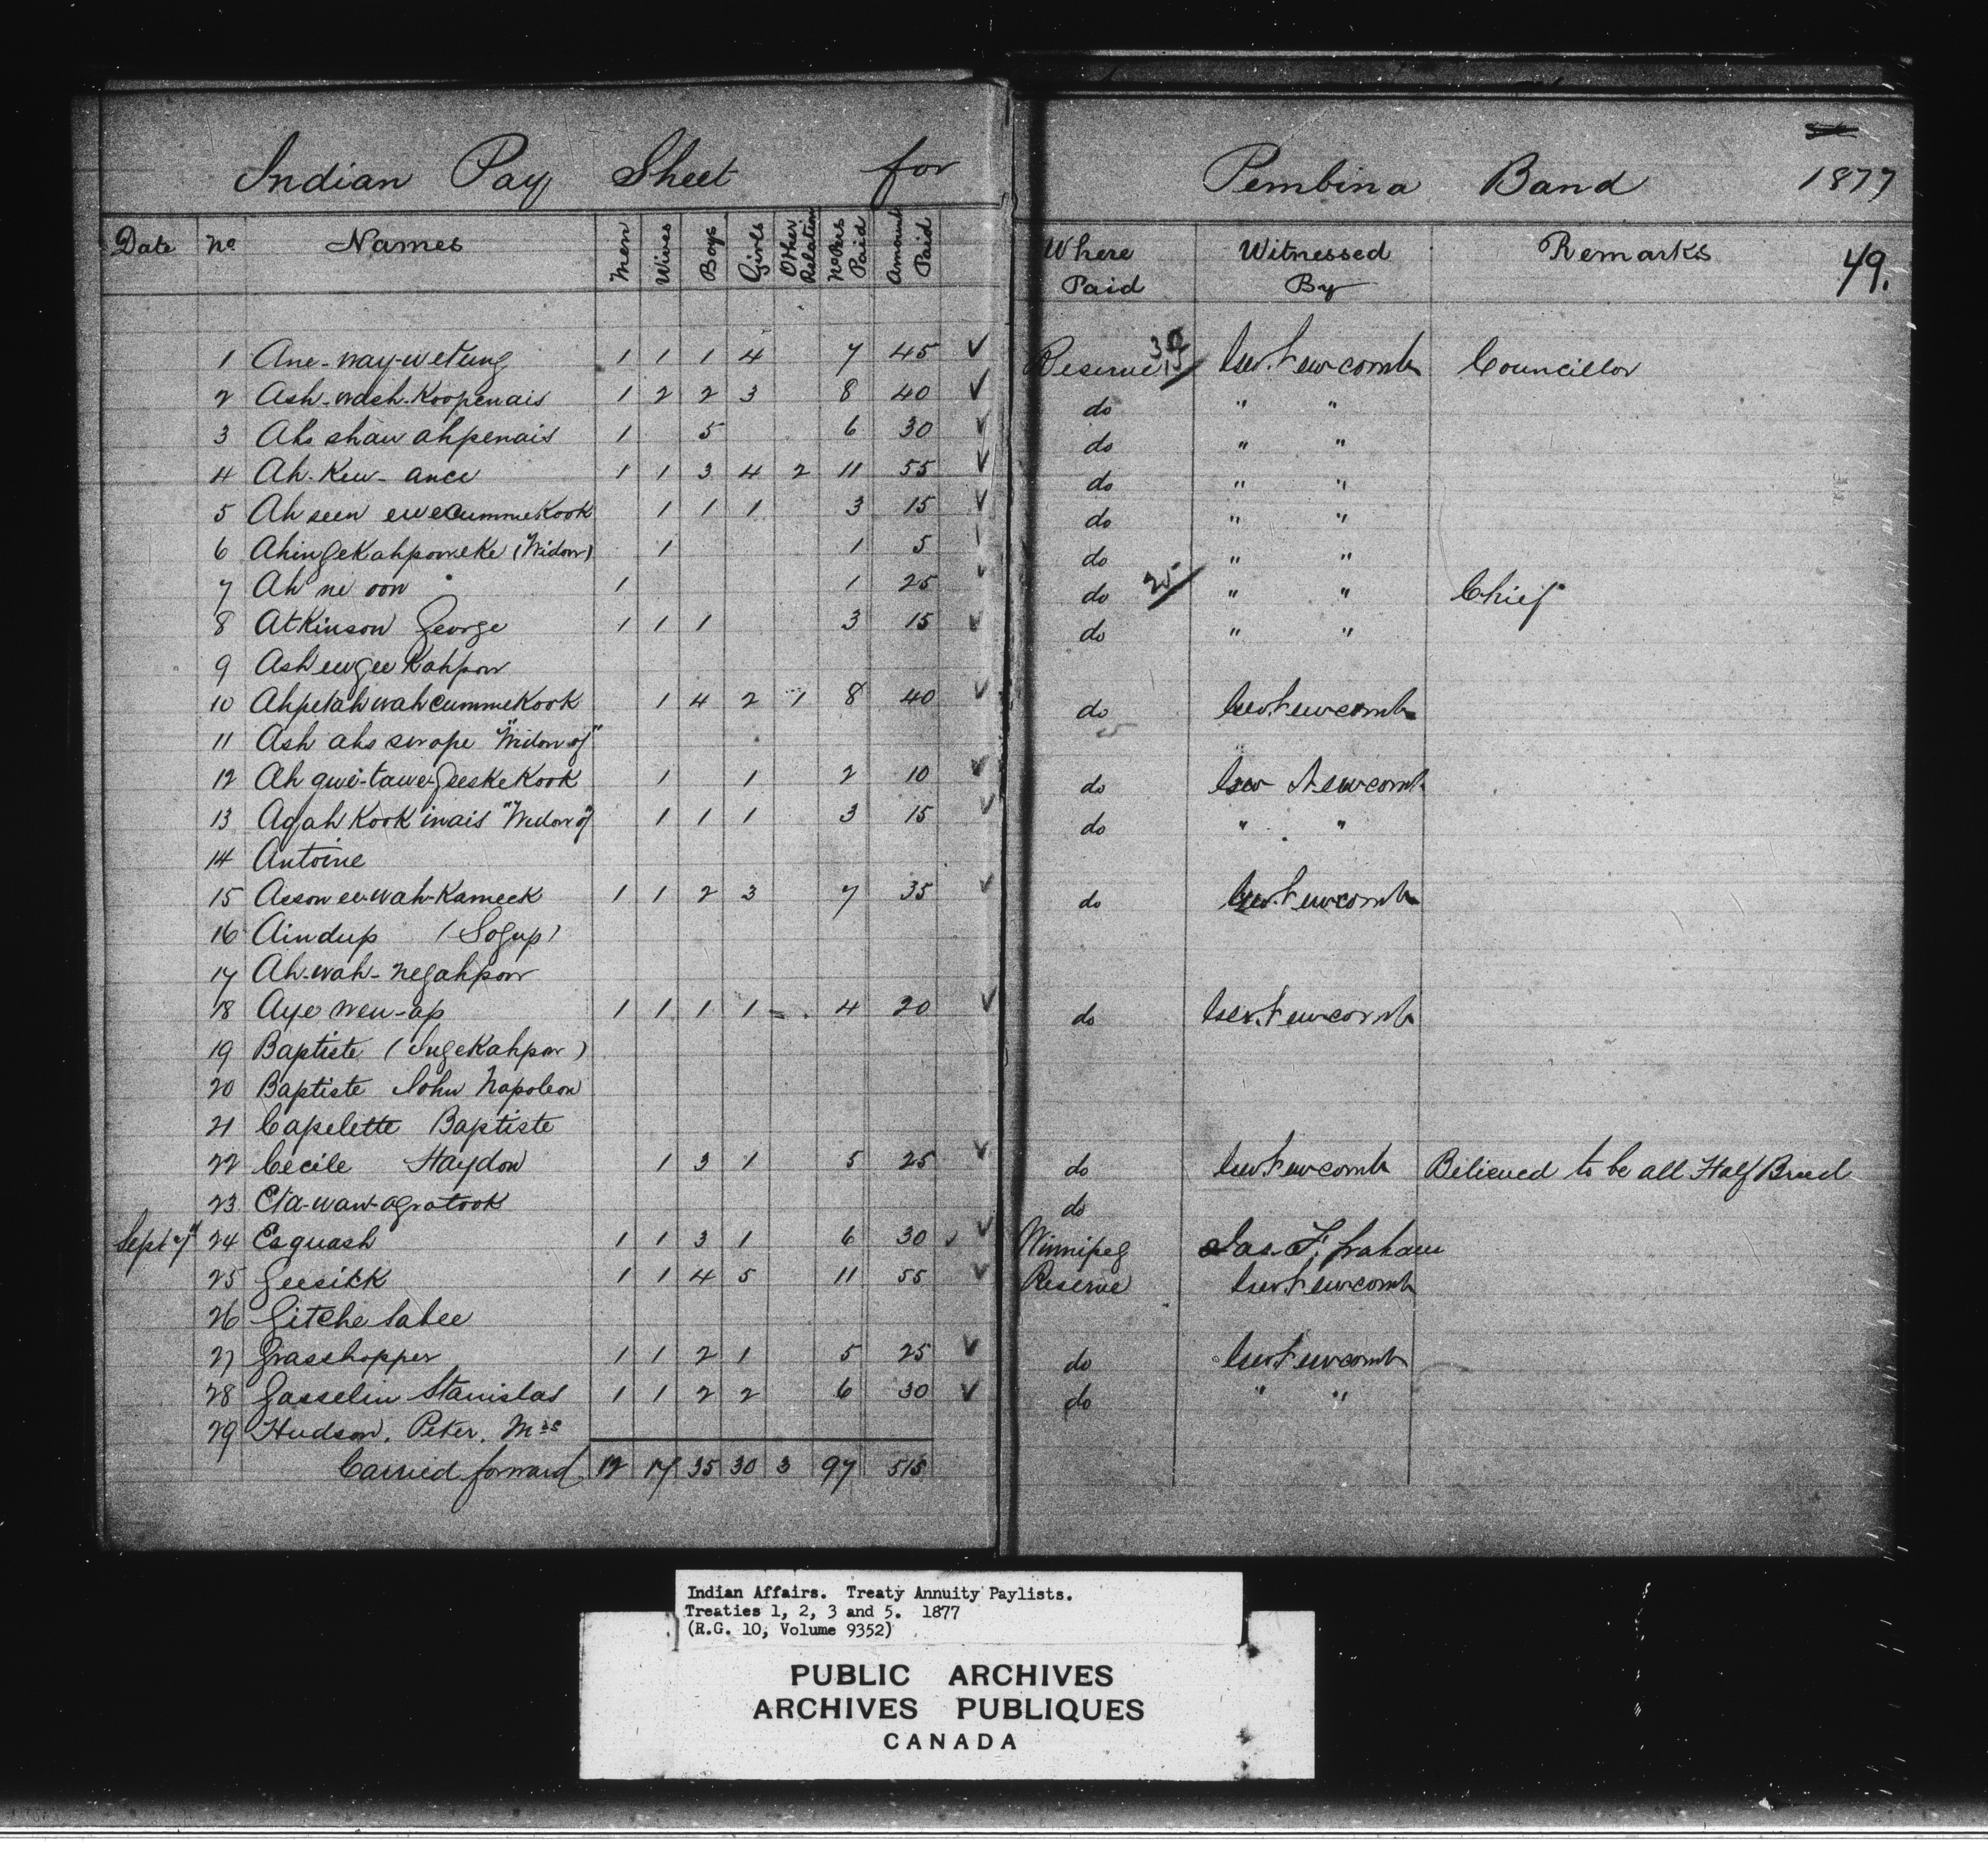 Indian Pay Sheet for Pembina Band 1877
Date No Names Men Wives Boys Girls Other Relation No Pers Paid Amount Paid Where Paid Witnessed By Remarks 49.
1 Ane-way-wetung 1 1 1 4 7 45 ✓ Reserve 15 Newcomb Councillor
2 Ash-wash-Koopenais 1 2 2 3 8 40 ✓ do " "
3 Ahs shaw ahpenais 1 5 6 30 ✓ do " "
4 Ah-Kew-ance 1 1 3 4 2 11 55 ✓ do " "
5 Ah seen ewecummeKook 1 1 1 3 15 ✓ do " "
6 AhingeKahpoweke (Widow) 1 1 5 ✓ do " "
7 Ah ne oon 1 1 25 ✓ do 25 " " Chief
8 Atkinson George 1 1 1 3 15 ✓ do " "
9 Ashewgee Kahpow
10 Ahpetah wahcummeKook 1 4 2 1 8 40 ✓ do Newcomb
11 Ash ahs swope "Widow of"
12 Ah qwe-tawe-GeeskeKook 1 1 2 10 ✓ do Newcomb
13 Agah Kook inais "Widow of" 1 1 1 3 15 ✓ do " "
14 Antoine
15 Asson ew-wah-Kameek 1 1 2 3 7 35 ✓ do Newcomb
16 Aindup (Sogup)
17 Ah-wah-negahpow
18 Aye wew-ap 1 1 1 1 4 20 ✓ do Newcomb
19 Baptiste (IngeKahpow)
20 Baptiste John Napoleon
21 Capelette Baptiste
22 Cecile Haydon 1 3 1 5 25 ✓ do Newcomb Bilieved to be all Half Breed
23 Eta-waw-agratook do
Sept 24 Esquash 1 1 3 1 6 30 ✓ Winnipeg Jas. F. Graham
25 Geesikk 1 1 4 5 11 55 ✓ Reserve Newcomb
26 Gitche Sabee
27 Grasshopper 1 1 2 1 5 25 ✓ do Newcomb
28 Gasselin Stanislas 1 1 2 2 6 30 ✓ do " "
29 Hudson, Peter, Mrs
Carried forward 12 17 35 30 3 97 515
Indian Affairs. Treaty Annuity Paylists.
Treaties 1, 2, 3 and 5. 1877
(R.G. 10, Volume 9352)
PUBLIC ARCHIVES
ARCHIVES PUBLIQUES
CANADA